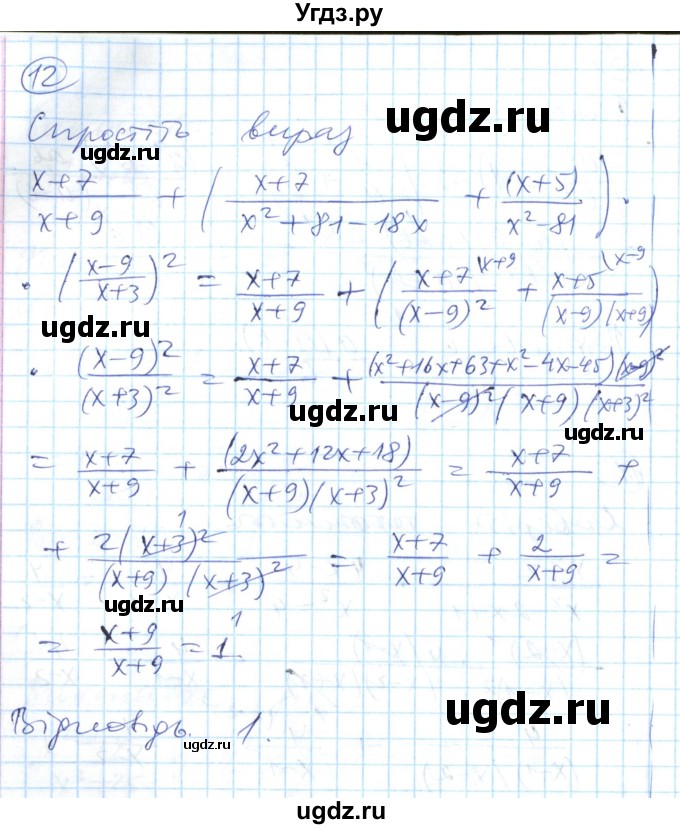 Угдз.ру
12
Спростіть вираз
ugdz.ru
ugdz.ru
(x+7)/(x+9) + ( (x+7)/(x²+81-18x) + (x+5)/(x²-81) ) ·
· ((x-9)/(x+3))² = (x+7)/(x+9) + ( (x+7)/(x-9)² \x+9 + (x+5)/((x-9)(x+9)) \x-9 )
ugdz.ru
ugdz.ru
· (x-9)²/(x+3)² = (x+7)/(x+9) + ((x²+16x+63+x²-4x-45)(x-9)²)/((x-9)²(x+9)(x+3)²)
ugdz.ru
ugdz.ru
= (x+7)/(x+9) + (2x²+12x+18)/((x+9)(x+3)²) = (x+7)/(x+9) +
ugdz.ru
+ 2(x+3)² 1/((x+9)(x+3)²) = (x+7)/(x+9) + 2/(x+9) =
ugdz.ru
= (x+9)/(x+9) = 1 1
ugdz.ru
ugdz.ru
Відповідь. 1.
ugdz.ru
ugdz.ru
ugdz.ru